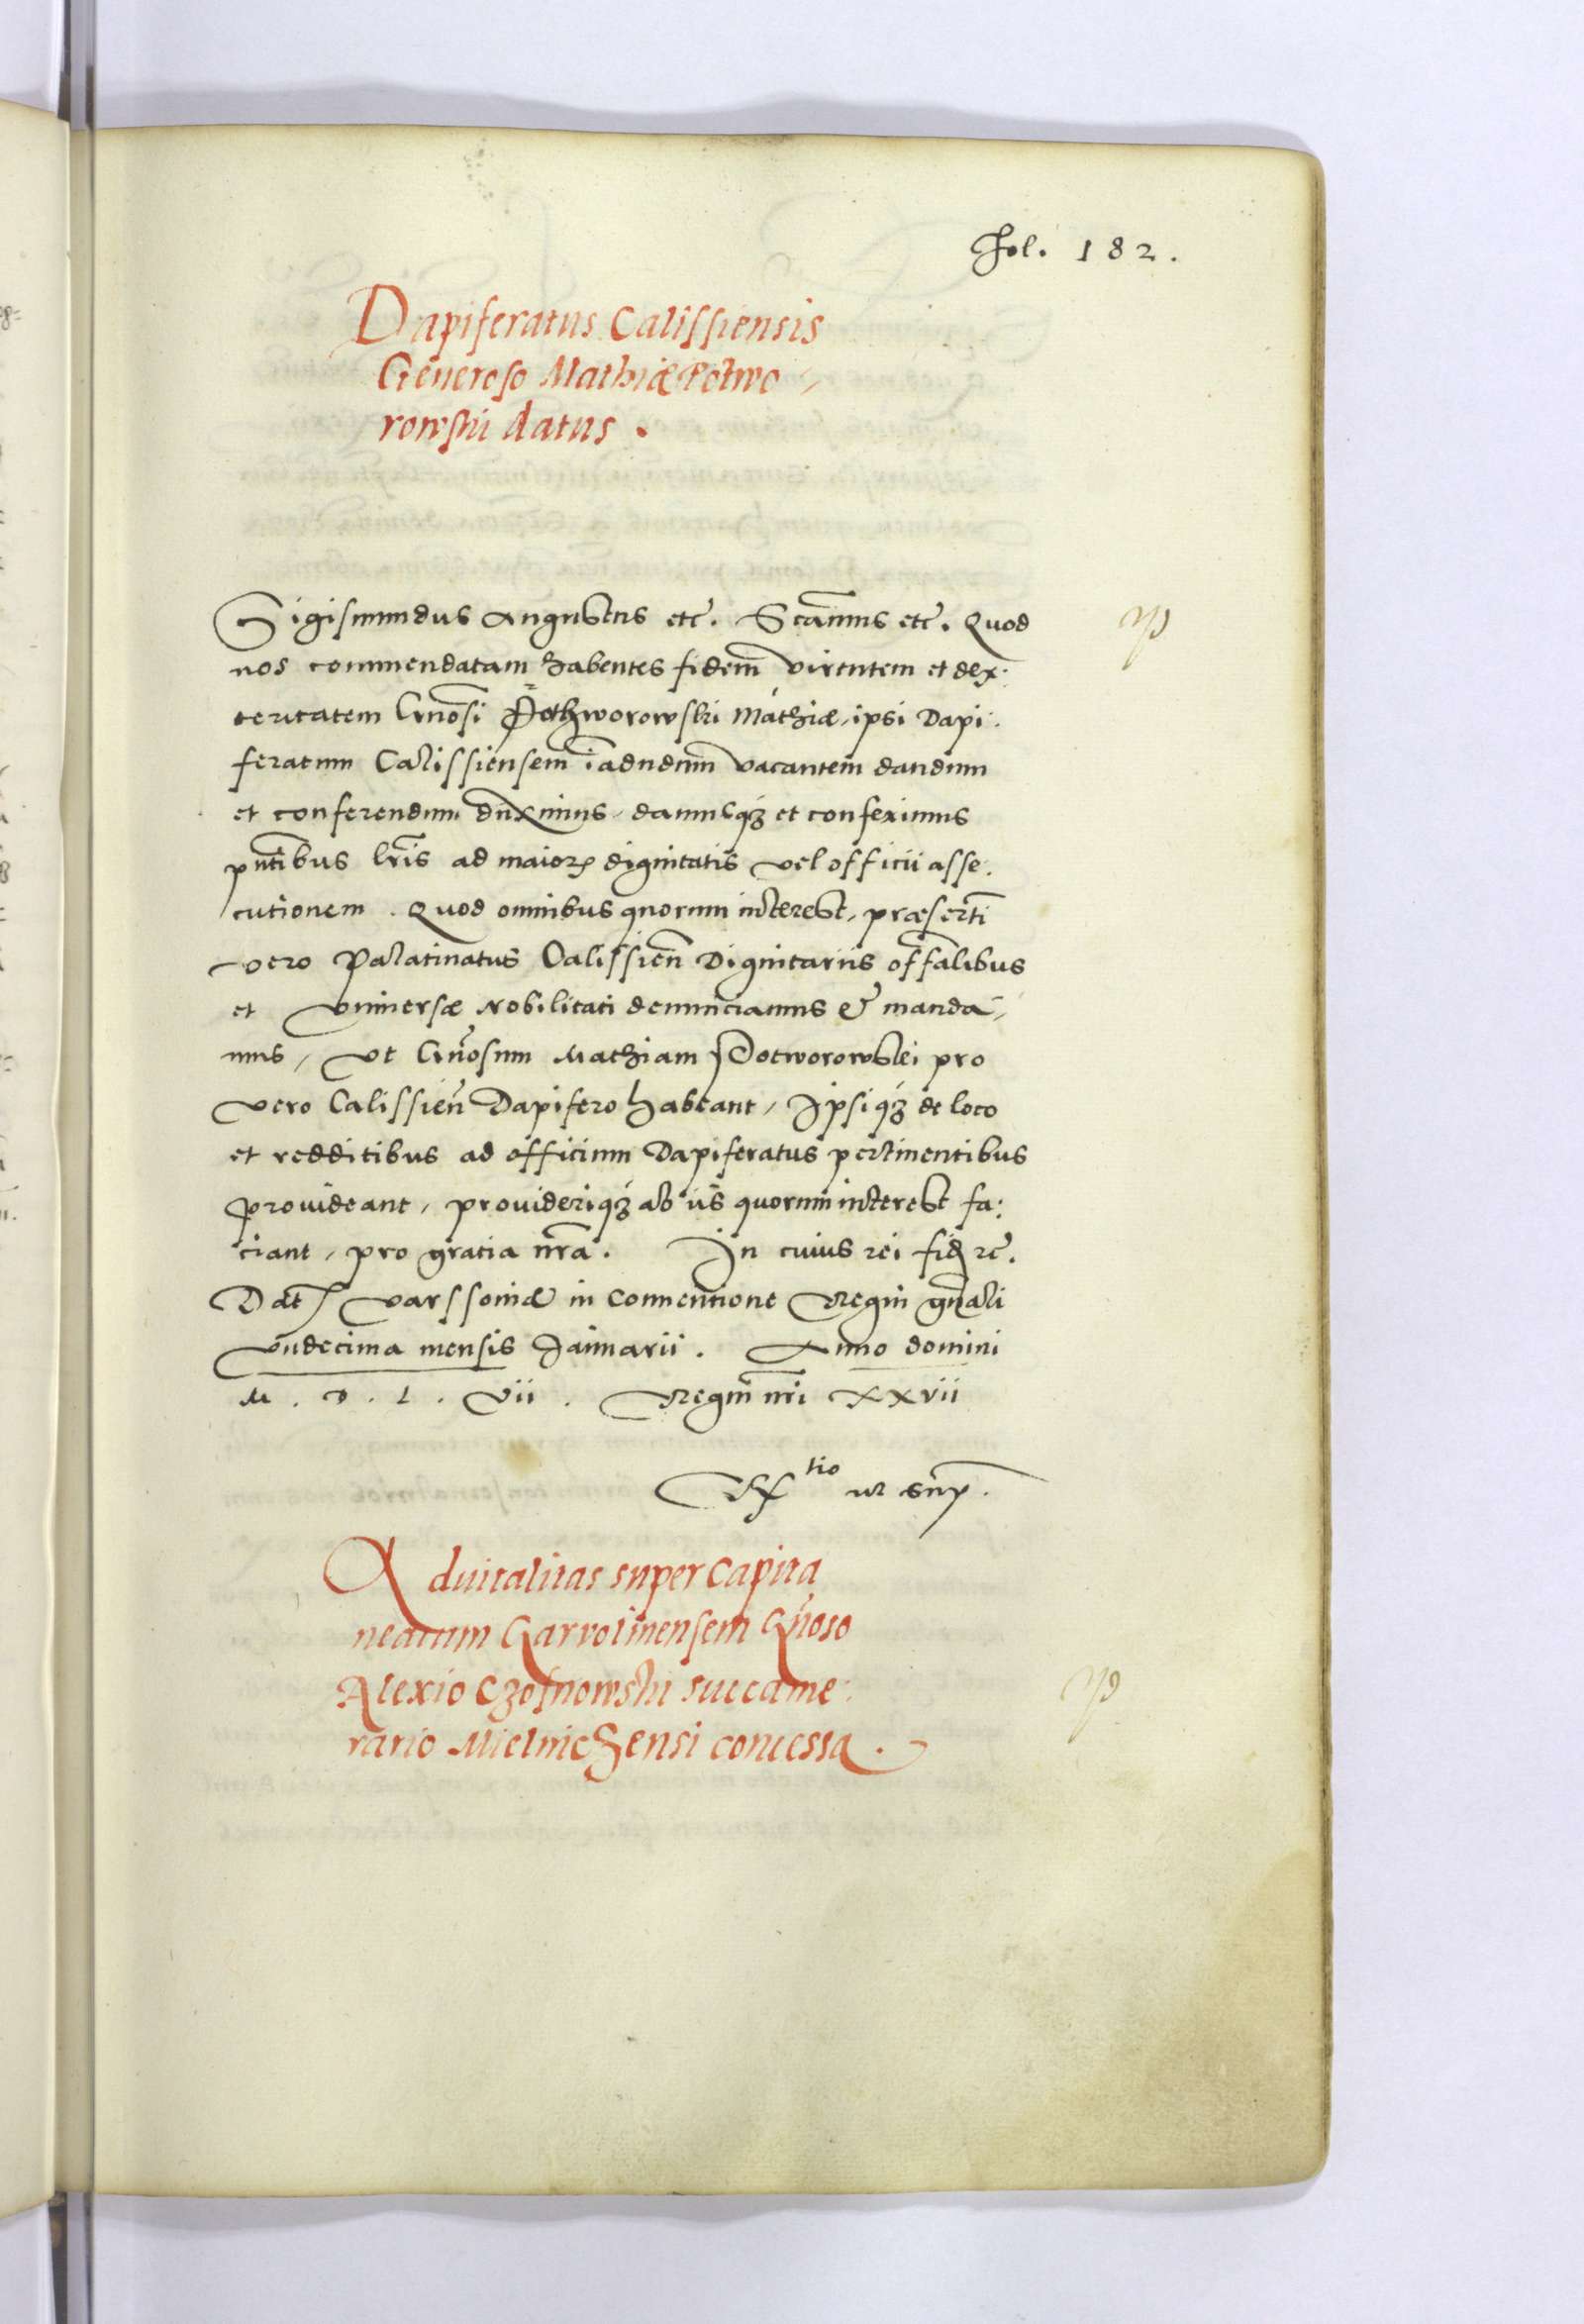 Fol. 182.
Dapiferatus Calissiensis
Generoso Mathiæ Potwo-
rowskii datus.
Sigismundus Augustus etc̃. Sc̃animus etc̃. Quod
nos commendatam habentes fidem̃ virtutem et dex:
teritatem Gñosi Pothworowski Mathiæ, ipsi Dapi:
feratum Calissiensem iãdudum vacantem dandum
et conferendum duximus, damusq́ꝫ et conferimus
pñtibus lr̃is ad maioꝝ dignitatis vel officii asse:
cutionem. Quod omnibus quorum interest, præsertĩ
vero Palatinatus Calissien̄ Dignitariis off̃alibus
et Vniuersæ Nobilitati denunciamus et manda-
mus, Vt Gñosum Mathiam Potworowskii pro
vero Calissien̄ Dapifero habeant, Ipsiq́ꝫ de loco
et redditibus ad officium Dapiferatus pertinentibus
prouideant, prouideriq́ꝫ ab iis quorum interest fa:
ciant, pro gratia nr̃a. In cuius rei fid̃ ꝛc̃.
Dat̃ Varssoniæ in Conuentione Regni gñali
Vndecima mensis Januarii. Anno domini
M. D. L. Vii. Regni nr̃i XXvii
Rx tio ut sup̃.
Aduitalitas super Capita
neatum Garvolinensem Gñoso
Alexio Czosnowskii succame:
rario Mielniczensi concessa.